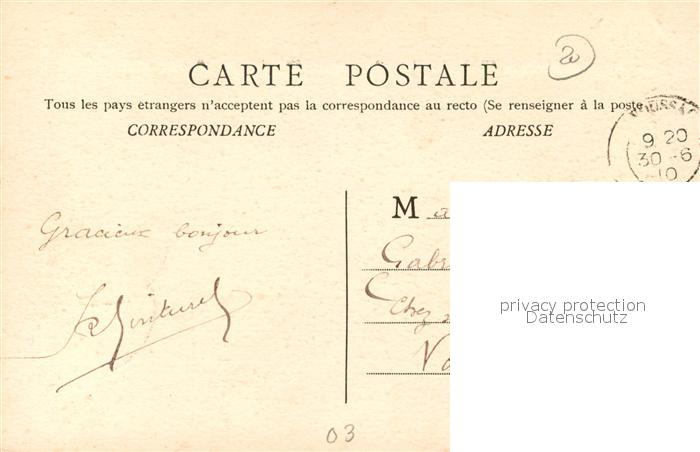 20
CARTE POSTALE
Tous les pays étrangers n'acceptent pas la correspondance au recto (Se renseigner à la poste
CORRESPONDANCE
ADRESSE
9 20
30 -6
10
Gracieux bonjour
M
Chez
privacy protection
Datenschutz
03